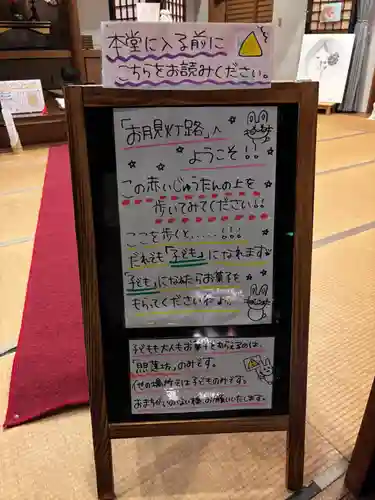 本堂に入る前に
こちらをお読みください。
「お月見灯路」へ
ようこそ!!
この赤いじゅうたんの上を
歩いてみてください!!
ここを歩くと.....!!!
だれでも「子ども」になれます
「子ども」になれたらお菓子を
もらってくださいねよ。
子どもも大人もお菓子をもらえるのは、
「照蓮坊」のみです。
(他の場所では子どものみです。
おまちがいのない様、お願いいたします。